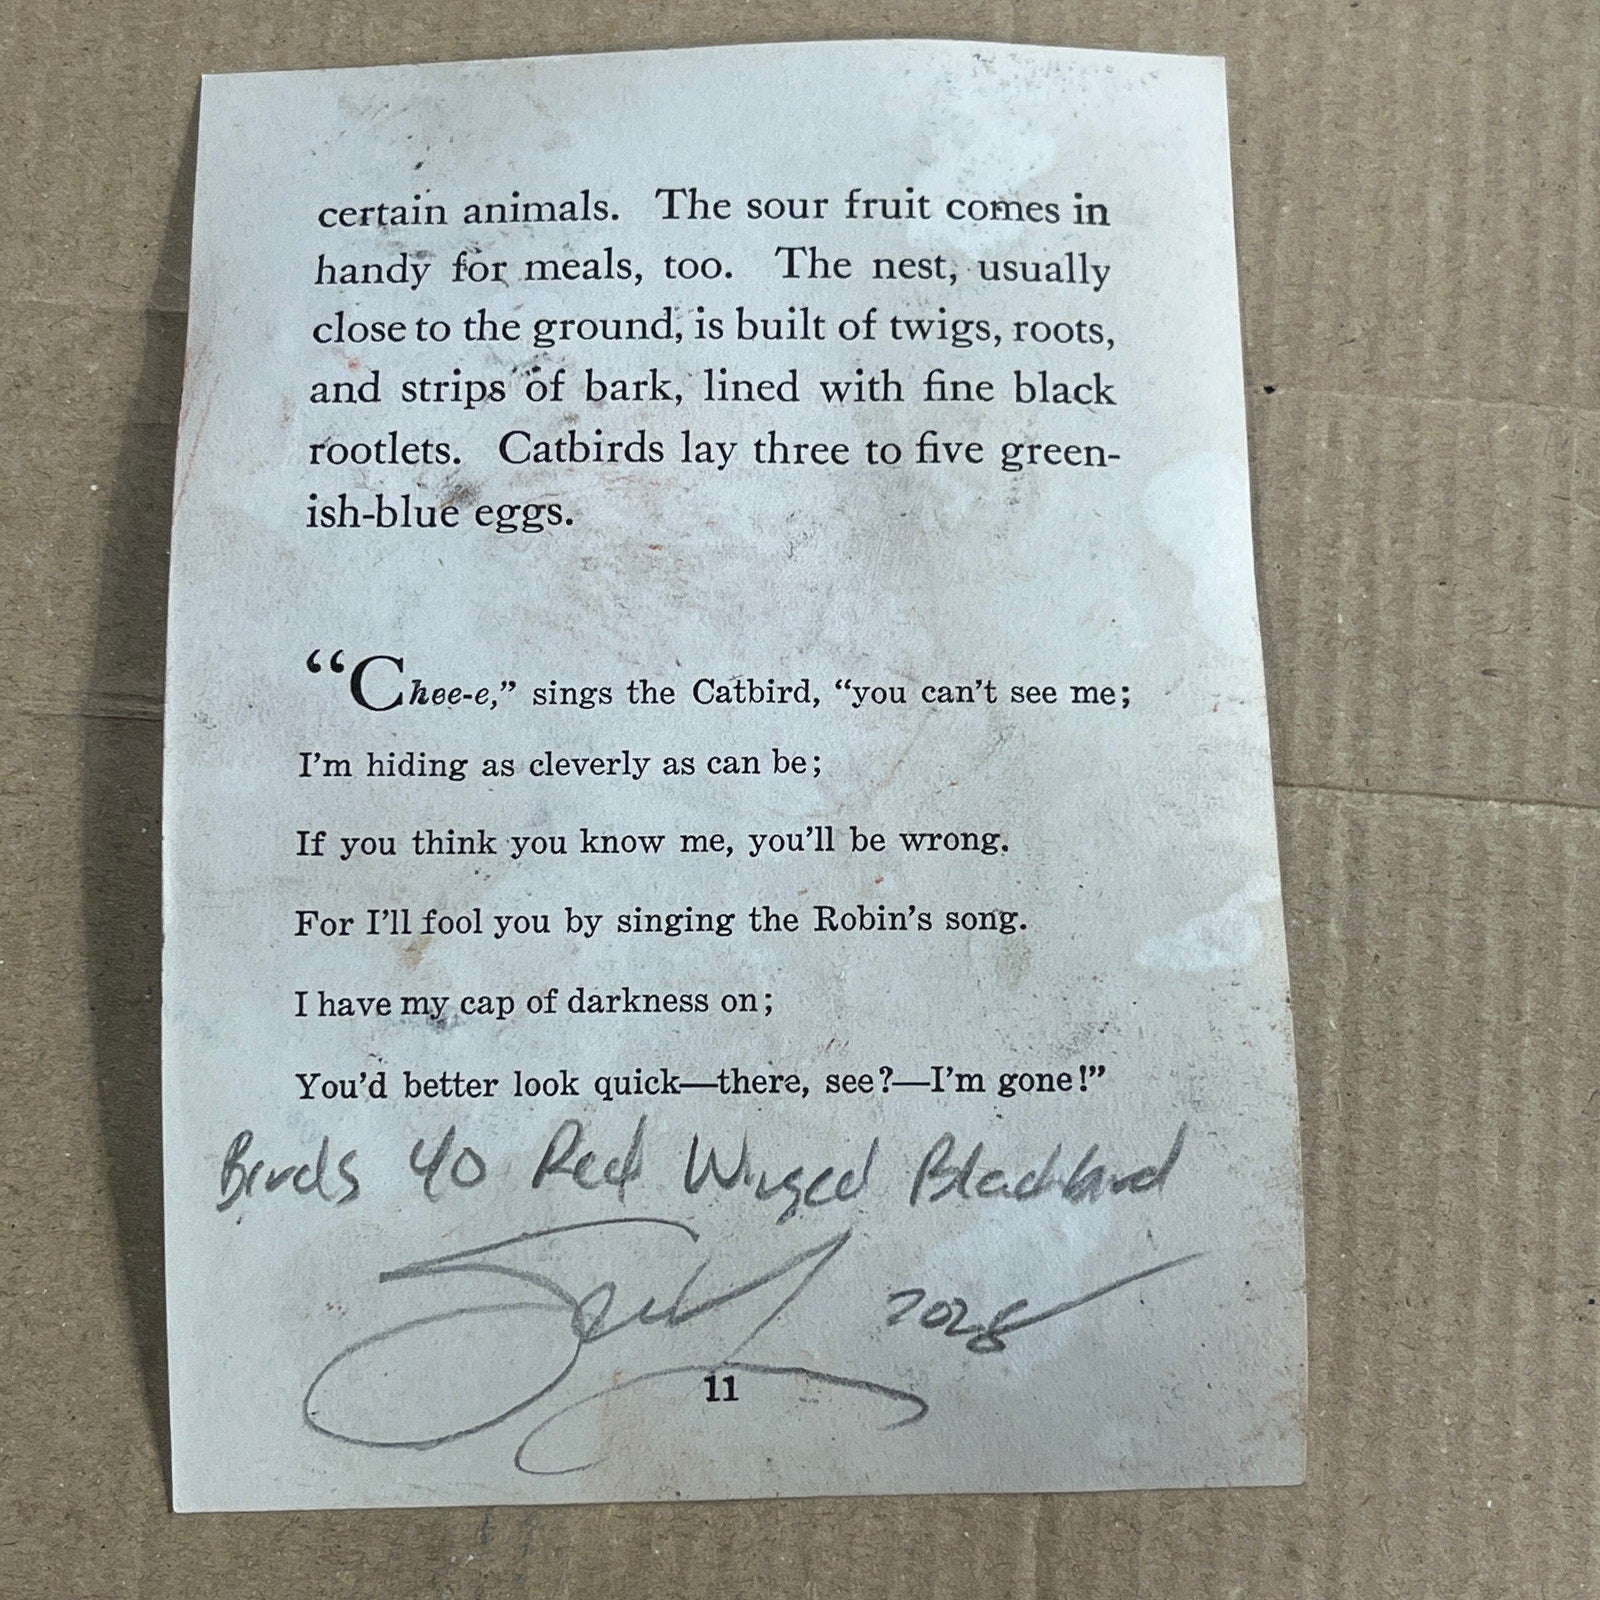 certain animals. The sour fruit comes in
handy for meals, too. The nest, usually
close to the ground, is built of twigs, roots,
and strips of bark, lined with fine black
rootlets. Catbirds lay three to five green-
ish-blue eggs.
“Chee-e,” sings the Catbird, “you can’t see me;
I’m hiding as cleverly as can be;
If you think you know me, you’ll be wrong.
For I’ll fool you by singing the Robin’s song.
I have my cap of darkness on;
You’d better look quick—there, see?—I’m gone!”
Birds 40 Red Winged Blackbird
11